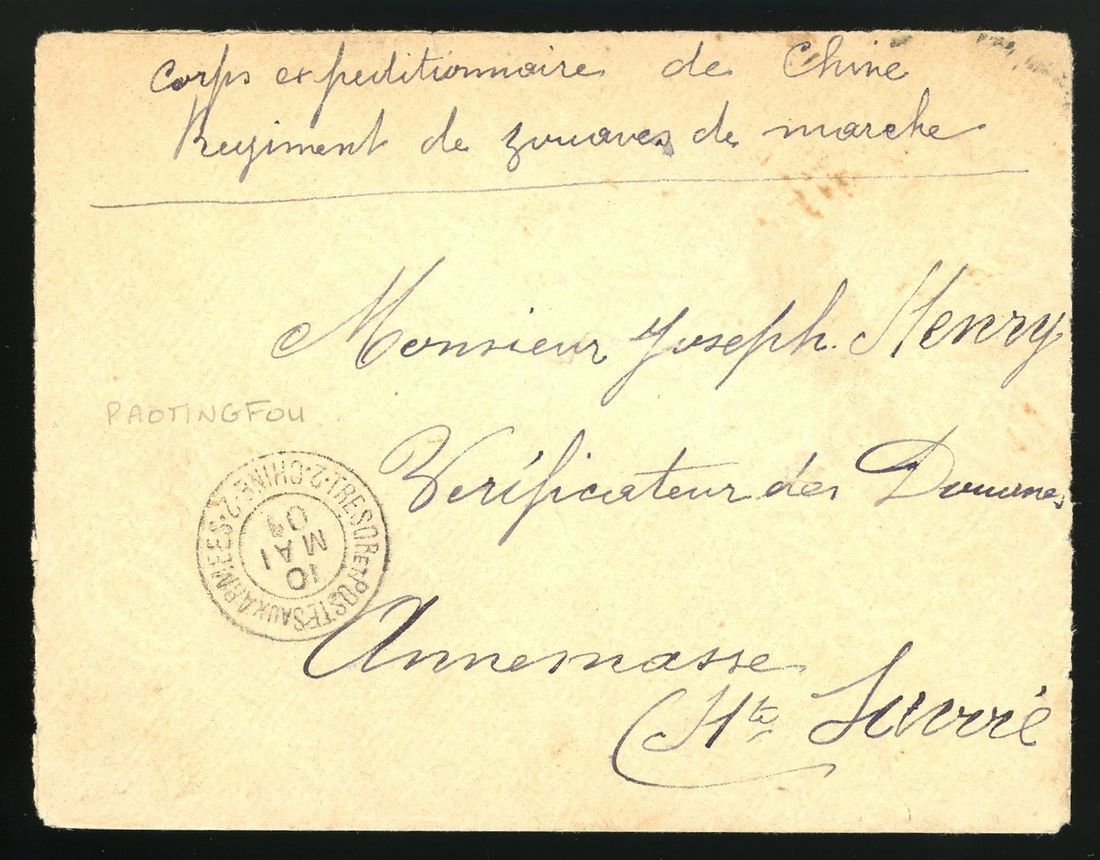 Corps expeditionnaire de Chine
Regiment de zouaves de marche
Monsieur Joseph Henry
PAOTINGFOU
Verificateur des Douanes
TRESOR ET POSTES AUX ARMEES · 2 · CHINE · 2 ·
10
MAI
01
Annemasse
Hte Savoie